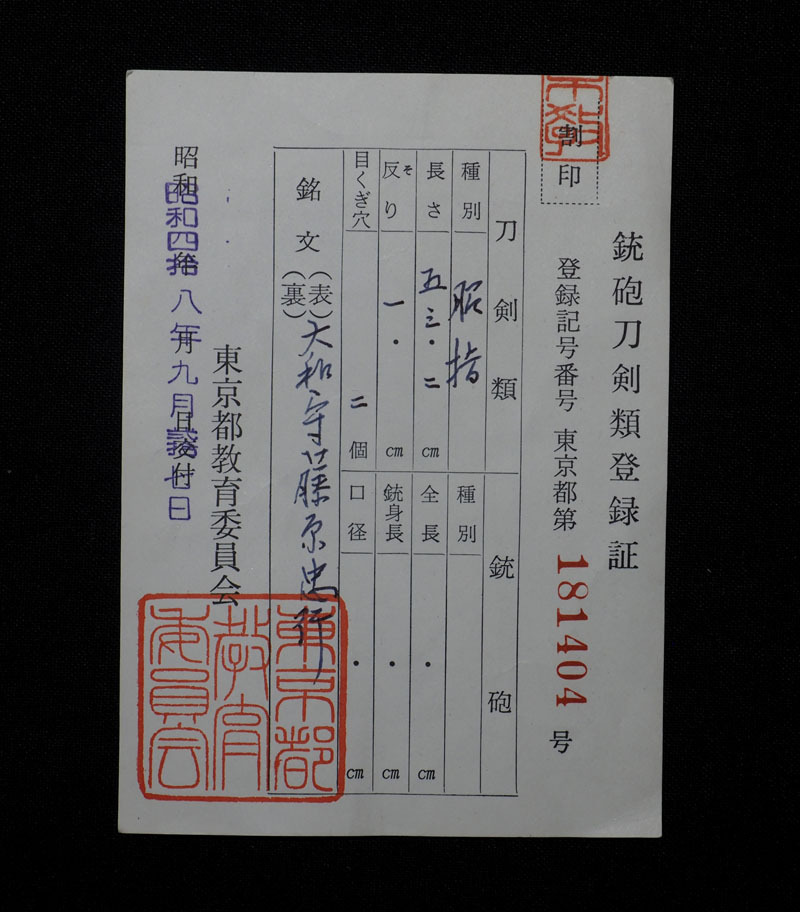 銃砲刀剣類登録証
割印
登録記号番号 東京都第 181404 号
刀剣類
銃砲
種別 脇指
種別
長さ 五三・二 cm
全長 ・ cm
反り そ 一・ cm
銃身長 ・ cm
目くぎ穴 二 個
口径 ・ cm
銘文 (表) 大和守藤原忠行
(裏)
東京都教育委員会
昭和 年 月 日交付
昭和四拾八年九月 日
東京都教育委員会